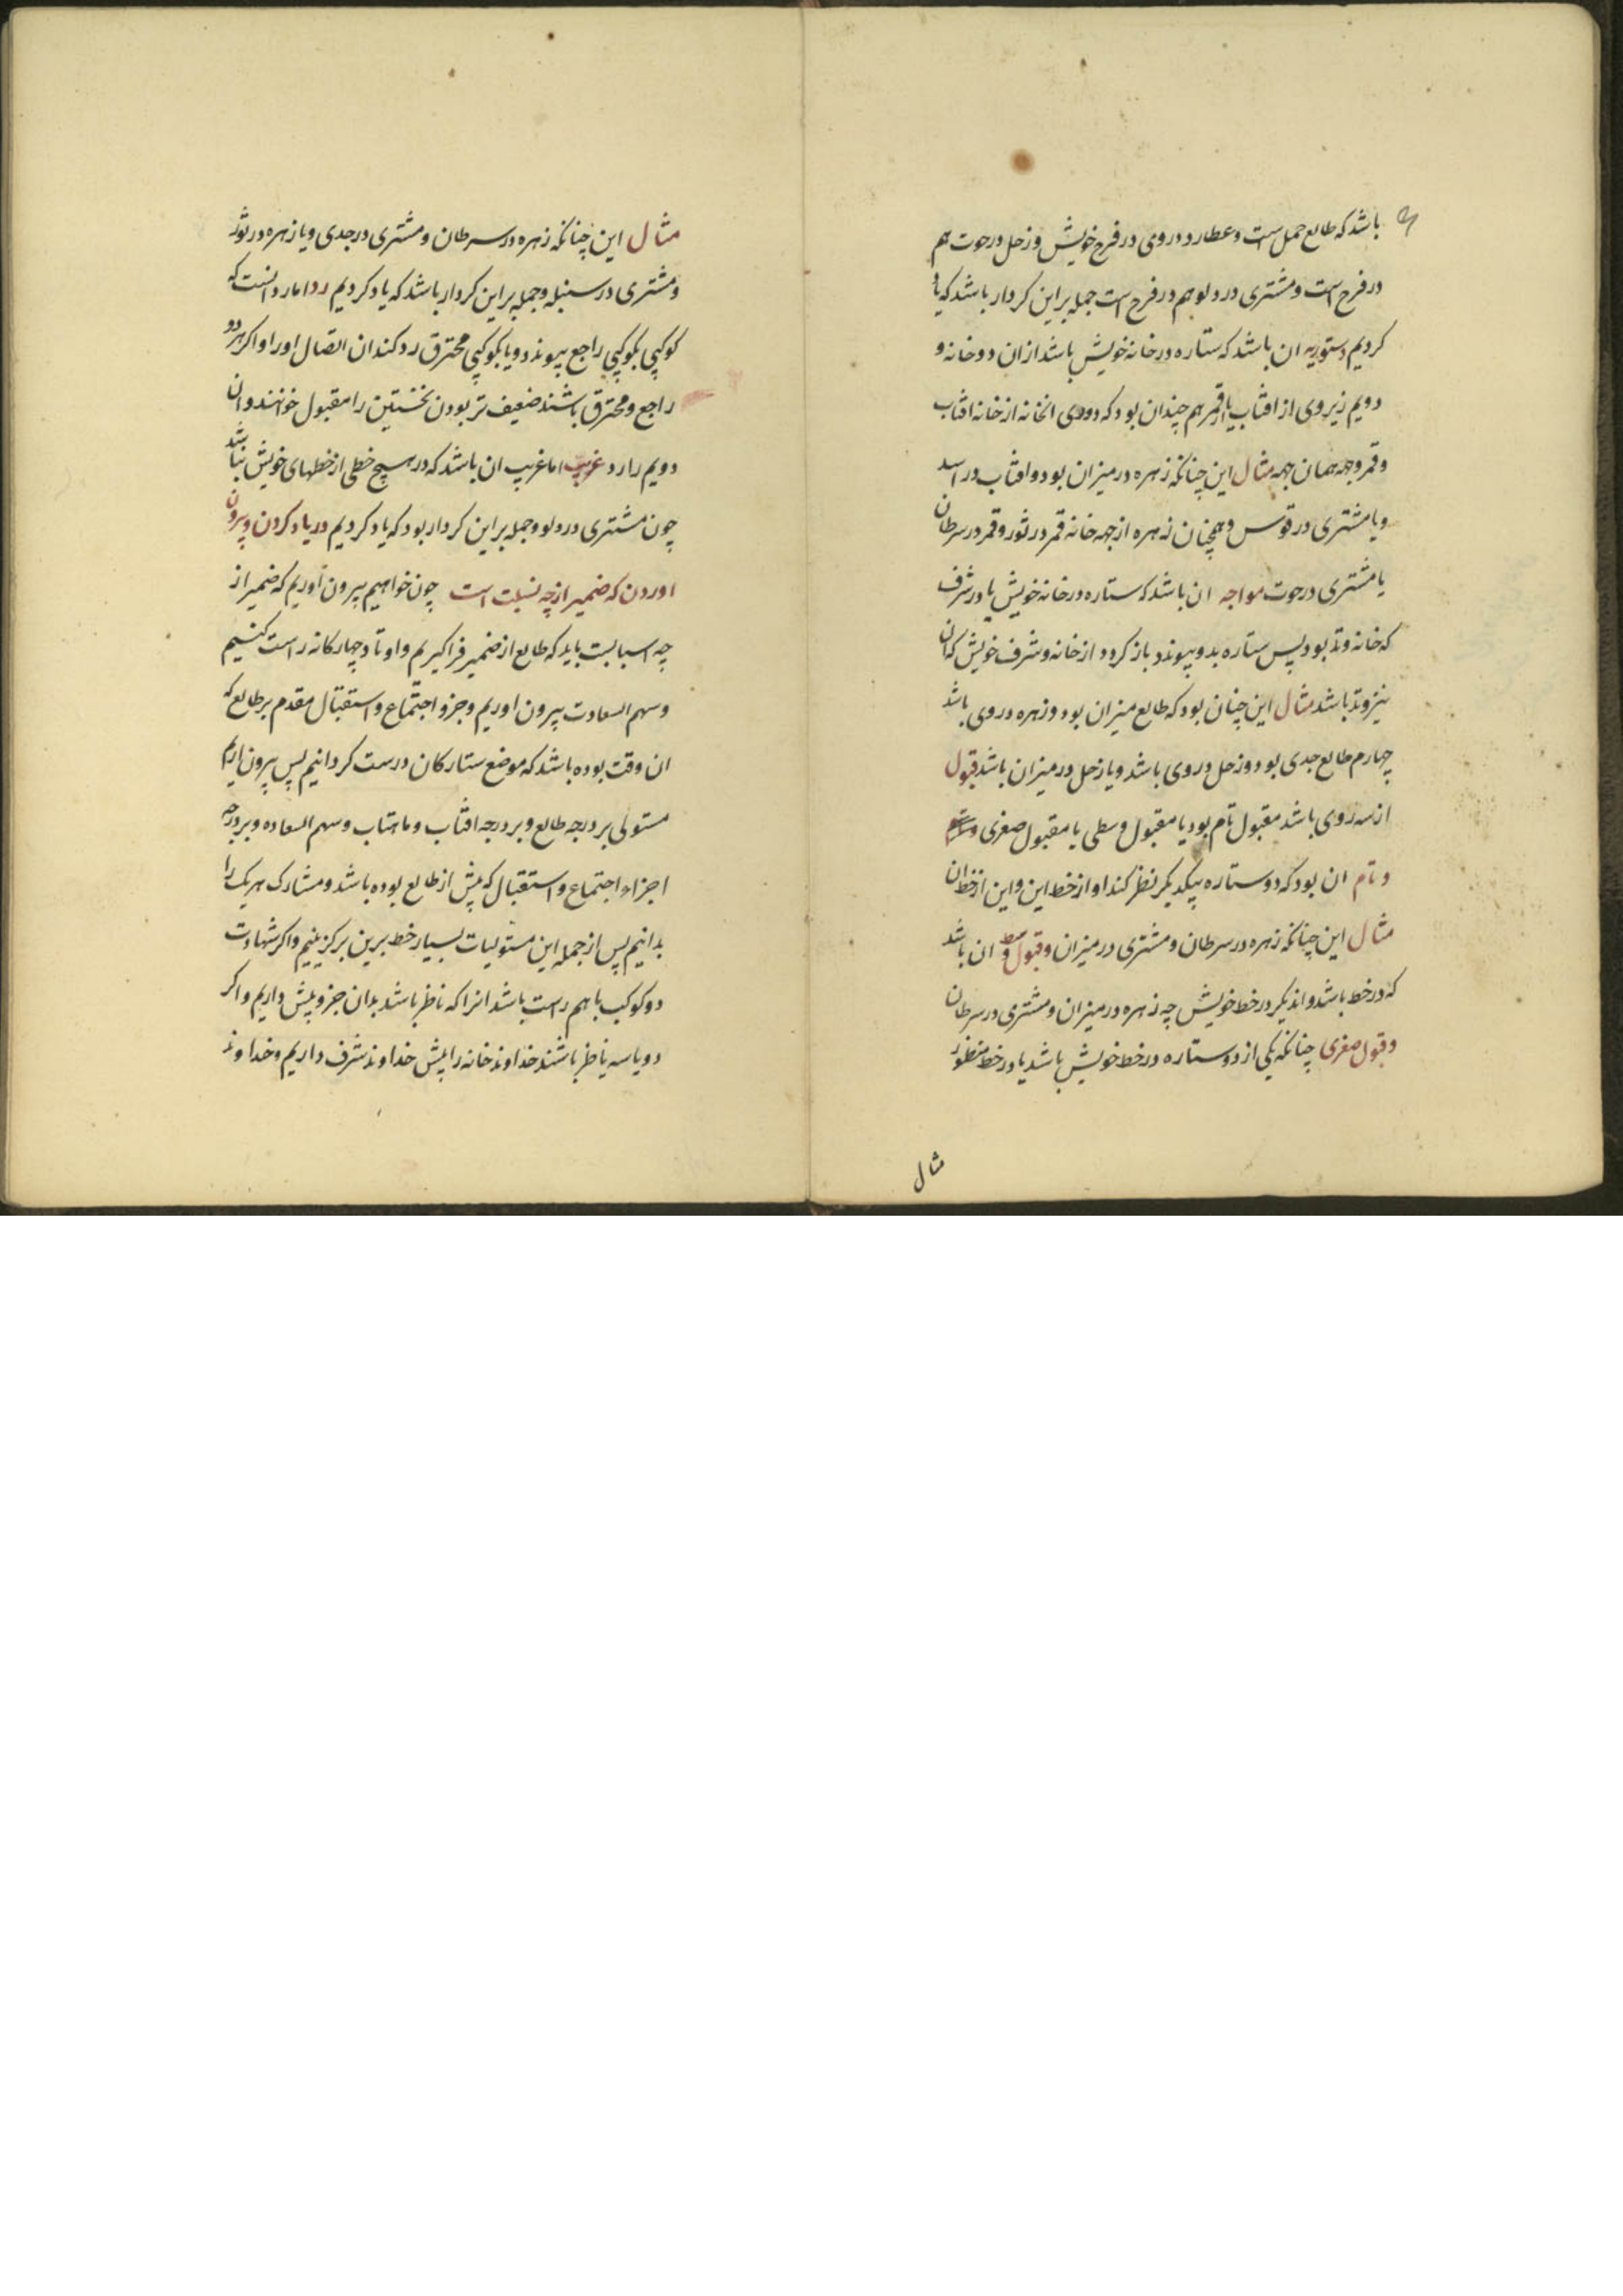 باشد که طالع حمل است و عطارد در وی در فرح خویش و زحل در حوت هم
در فرح است و مشتری در دلو هم در فرح است جمله بر این کردار باشد که یاد
کردیم دستوریه ان باشد که ستاره در خانه خویش باشد از ان دو خانه و
دویم زیروی از افتاب یا از قمر هم چندان بود که دوری انخانه از خانه افتاب
و قمر و جهه همان جهه مثال این چنانکه زهره در میزان بود و افتاب در اسد
و یا مشتری در قوس و همچنان زهره از جهه خانه قمر در ثور و قمر در سرطان
یا مشتری در حوت مواجه ان باشد که ستاره در خانه خویش یا در شرف
که خانه وتد بود پس ستاره بدو پیوندد باز کردد از خانه و شرف خویش که ان
نیز وتد باشد مثال این چنان بود که طالع میزان بود و زهره در وی باشد
چهارم طالع جدی بود و زحل در وی باشد و یا زحل در میزان باشد قبول
از سه روی باشد مقبول تام بود یا مقبول وسطی یا مقبول صغری
و تام ان بود که دو ستاره بیکدیکر نظر کند او از خط این و این از خط ان
مثال این چنانکه زهره در سرطان و مشتری در میزان و قبول وسط ان باشد
که در خط باشد و اندیکر در خط خویش چه زهره در میزان و مشتری در سرطان
و قبول صغری چنانکه یکی از دو ستاره در خط خویش باشد یا در خط منظور
مثال
مثال این چنانکه زهره در سرطان و مشتری در جدی و یا زهره در ثور
و مشتری در سنبله و جمله بر این کردار باشد که یاد کردیم رد اما رد انست که
کوکبی بکوکبی راجع پیوندد و یا بکوکبی محترق رد کند ان اتصال اورا و اکر هر دو
راجع و محترق باشند ضعیف تر بودن نخستین را مقبول خوانند و ان
دویم را رد غریب اما غریب ان باشد که در هیچ خطی از خطهای خویش نباشد
چون مشتری در دلو و جمله بر این کردار بود که یاد کردیم در یاد کردن و بیرون
اوردن که ضمیر از چه نسبت است چون خواهیم بیرون آوریم که ضمیر از
چه اسبابست باید که طالع از ضمیر فرا کیریم و اوتاد چهار کانه راست کنیم
و سهم السعادت بیرون اوریم و جزو اجتماع و استقبال مقدم بر طالع که
ان وقت بوده باشد که موضع ستارکان درست کردانیم پس بیرون اریم
مستولی بر درجه طالع و بر درجه افتاب و ماهتاب و سهم السعاده و بر درجه
اجزاء اجتماع و استقبال که پیش از طالع بوده باشد و مشارک هر یک را
بدانیم پس از جمله این مستولیات بسیار خط برین برکزینیم و اکر شهادت
دو کوکب با هم راست باشد انرا که ناظر باشد بدان جزو پیش داریم و اکر
دو یا سه ناظر باشند خداوند خانه را پیش خداوند شرف داریم و خداوند